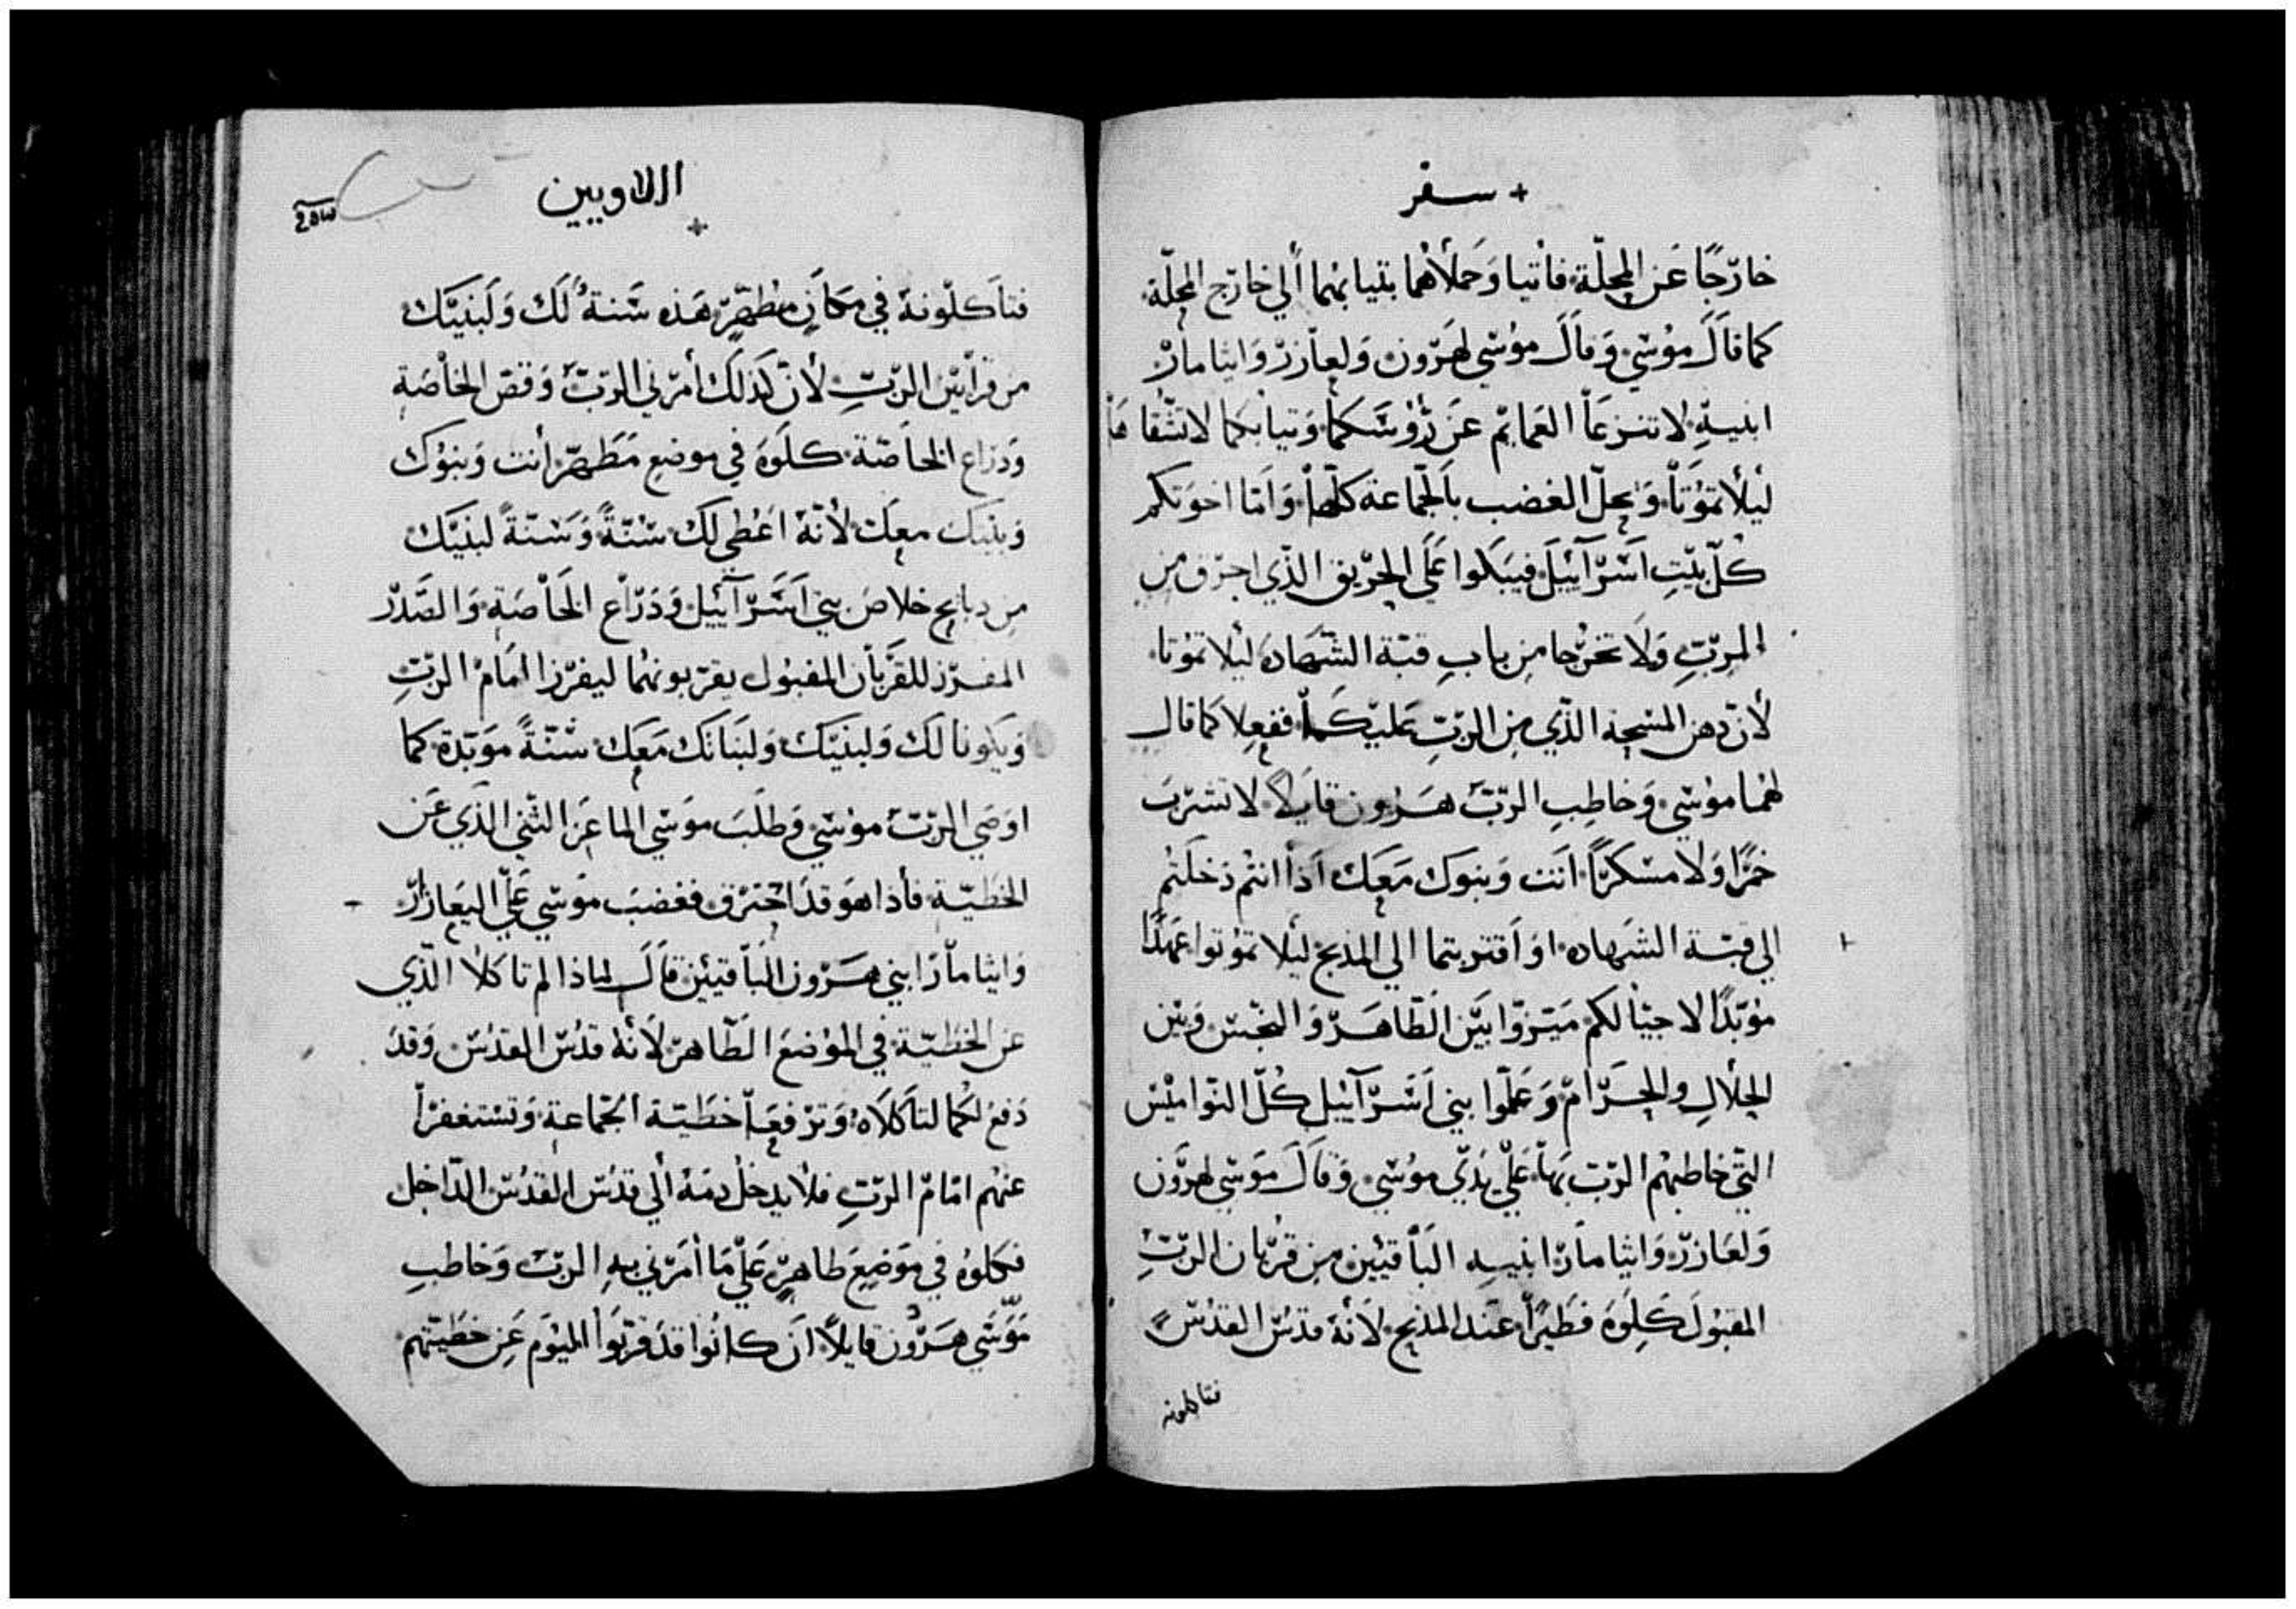 + سفر
خارجًا عن المحلّة فأتيا وَحملأهما بثيابهما ألي خارج المحلّة
كما قالَ موُسي وَقالَ موُسي لهَرون وَلعازر وَايثامار
ابنيهِ لا تنزعَا العَمايم عَن رُؤسَكما وَثيابكما لا تشُقاهَا
ليلأ تمَوُتا وَيحلّ الغضب بالجماعة كلّها وَامَا اخوَتكم
كُلّ بيَتِ اسَرآئيَل فيبَكوا عَلَى الحرَيق الذي احرق مِن
الربِّ وَلا تخرُجا مِن بابِ قبّة الشهادَة ليلا تموُتا
لأنّ دهن المسحة الذّي مِن الربِّ عليَكمَا ففعلا كما قال
لهمُا موُسي وَخاطبِ الربّ هَرون قايلاً لا تشرَبَ
خمرًا وَلا مسكرًا انَت وَبنوك معَك اذَا انتُم دَخلتُم
الي قبّة الشهاده اوَ اقتربتما الي المذبح ليلا تموُتوا عهدًا
موُبّدًا لاجيالكم ميَزوا بيَن الطّاهَر وَالنجَس وَبيَن
الحلالِ والحَرام وَعَلموا بني اسَرآئيل كُلّ النوامَيس
التي خاطبهُم الربّ بهَا عَلي يَديّ موُسي وَقالَ موَسي لهرَون
وَلعَازر وَايثامار ابنيه البَاقيَين مِن قربُان الربِّ
المقبوُلَ كَلوَهُ فطَيرًا عنَد المذبح لأنهُ قدُس القدُس
فتاكلونه
اللاويين
+
فتأكلوُنهُ في مَكانٍ مطهّرٍ هَذه سَنةٌ لَك وَلبَنيَك
مِن قرابيَن الربِّ لأنّ كذلَك أمرَني الربّ وَقصّ الخاصَة
وَذرَاع الخاصّة كلوَهُ في موضعِ مَطَهرّ أنت وَبنوُك
وَبيَتك معَك لأنّهُ اعُطي لك سُنّةً وَسَنّةً لبنيَك
مِن دبايح خلاصَ بني اسَرآئيل وَذرَاع الخَاصَة وَالصَدرّ
المفرَز للقربَان المقبوُل يقربونهُما ليفرَزا امَامَ الربِّ
وَيكَونا لَك وَلبنيَك وَلبَناتَك مَعَك سُنّةً موَبّدة كما
اوصَي الربّ موُسي وَطلَبَ موَسي الماعَز الثني الذَي عَن
الخطَيّة فأذا هوَ قدَ احترَق فغضبَ موَسي عَليّ اليعَازار
وَايثامار ابني هَرون البَاقيَين قالَ لماذا لم تاكلا الذّي
عن الخطَيّة في الموُضعَ الطّاهر لأنهُ قدُس القدُس وَقدَ
دَفع لكُما لتاكَلاهُ وَترَفعَا خطَيّة الجماعة وَتسَتغفرا
عنهُم امَامَ الربِّ فلأ يدخلُ دمَهُ ألي قدُس القدُس الدّاخل
فكلوُه في موَضعِ طاهرٍ عَليّ مَا أمَرني بهِ الربّ وَخاطب
موَسَي هَرون قايلاً انَ كانُوا قدَ قرّبوَا اليوَم عَن خطَيّتهم